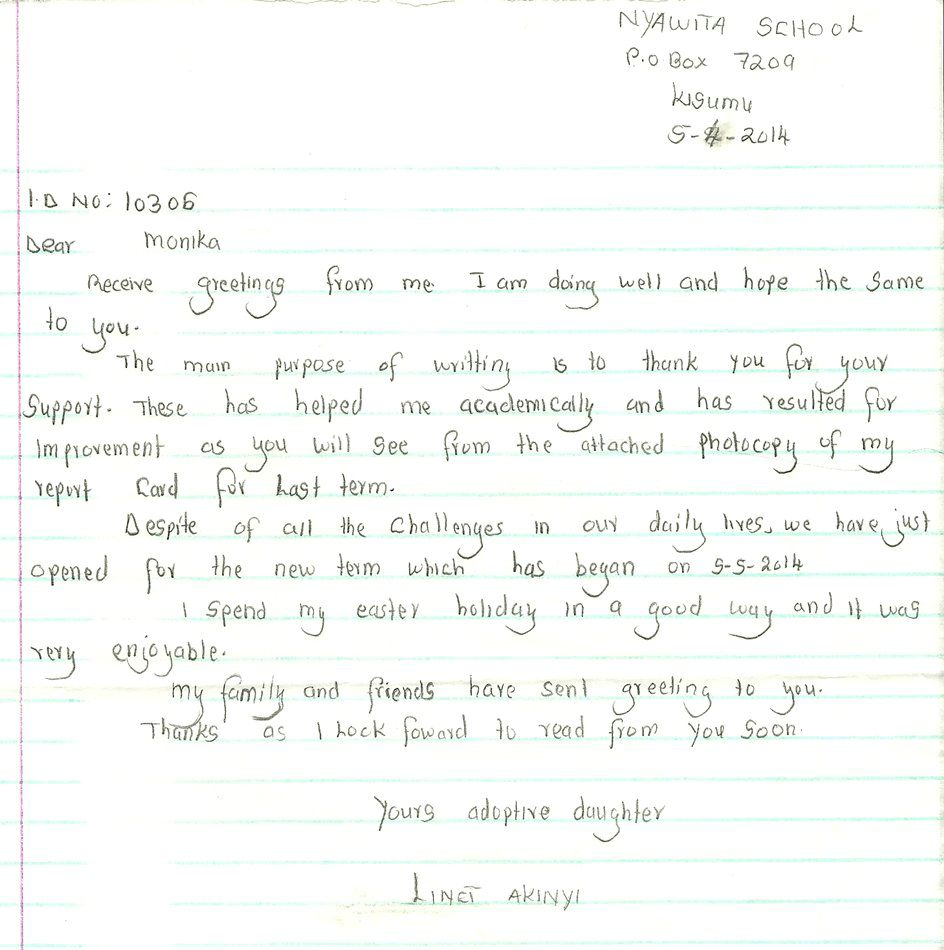 NYAWITA SCHOOL
P.O BOX 7209
KISUMU
5-4-2014
I.D NO: 10306
Dear Monika
Receive greetings from me. I am doing well and hope the same
to you.
The main purpose of writting is to thank you for your
Support. These has helped me academically and has resulted for
Improvement as you will see from the attached photocopy of my
report Card for Last term.
Despite of all the challenges in our daily lives, we have just
opened for the new term which has began on 5-5-2014
I spend my easter holiday in a good way and it was
very enjoyable.
My family and friends have sent greeting to you.
Thanks as I Look foward to read from you soon.
Yours adoptive daughter
LINET AKINYI